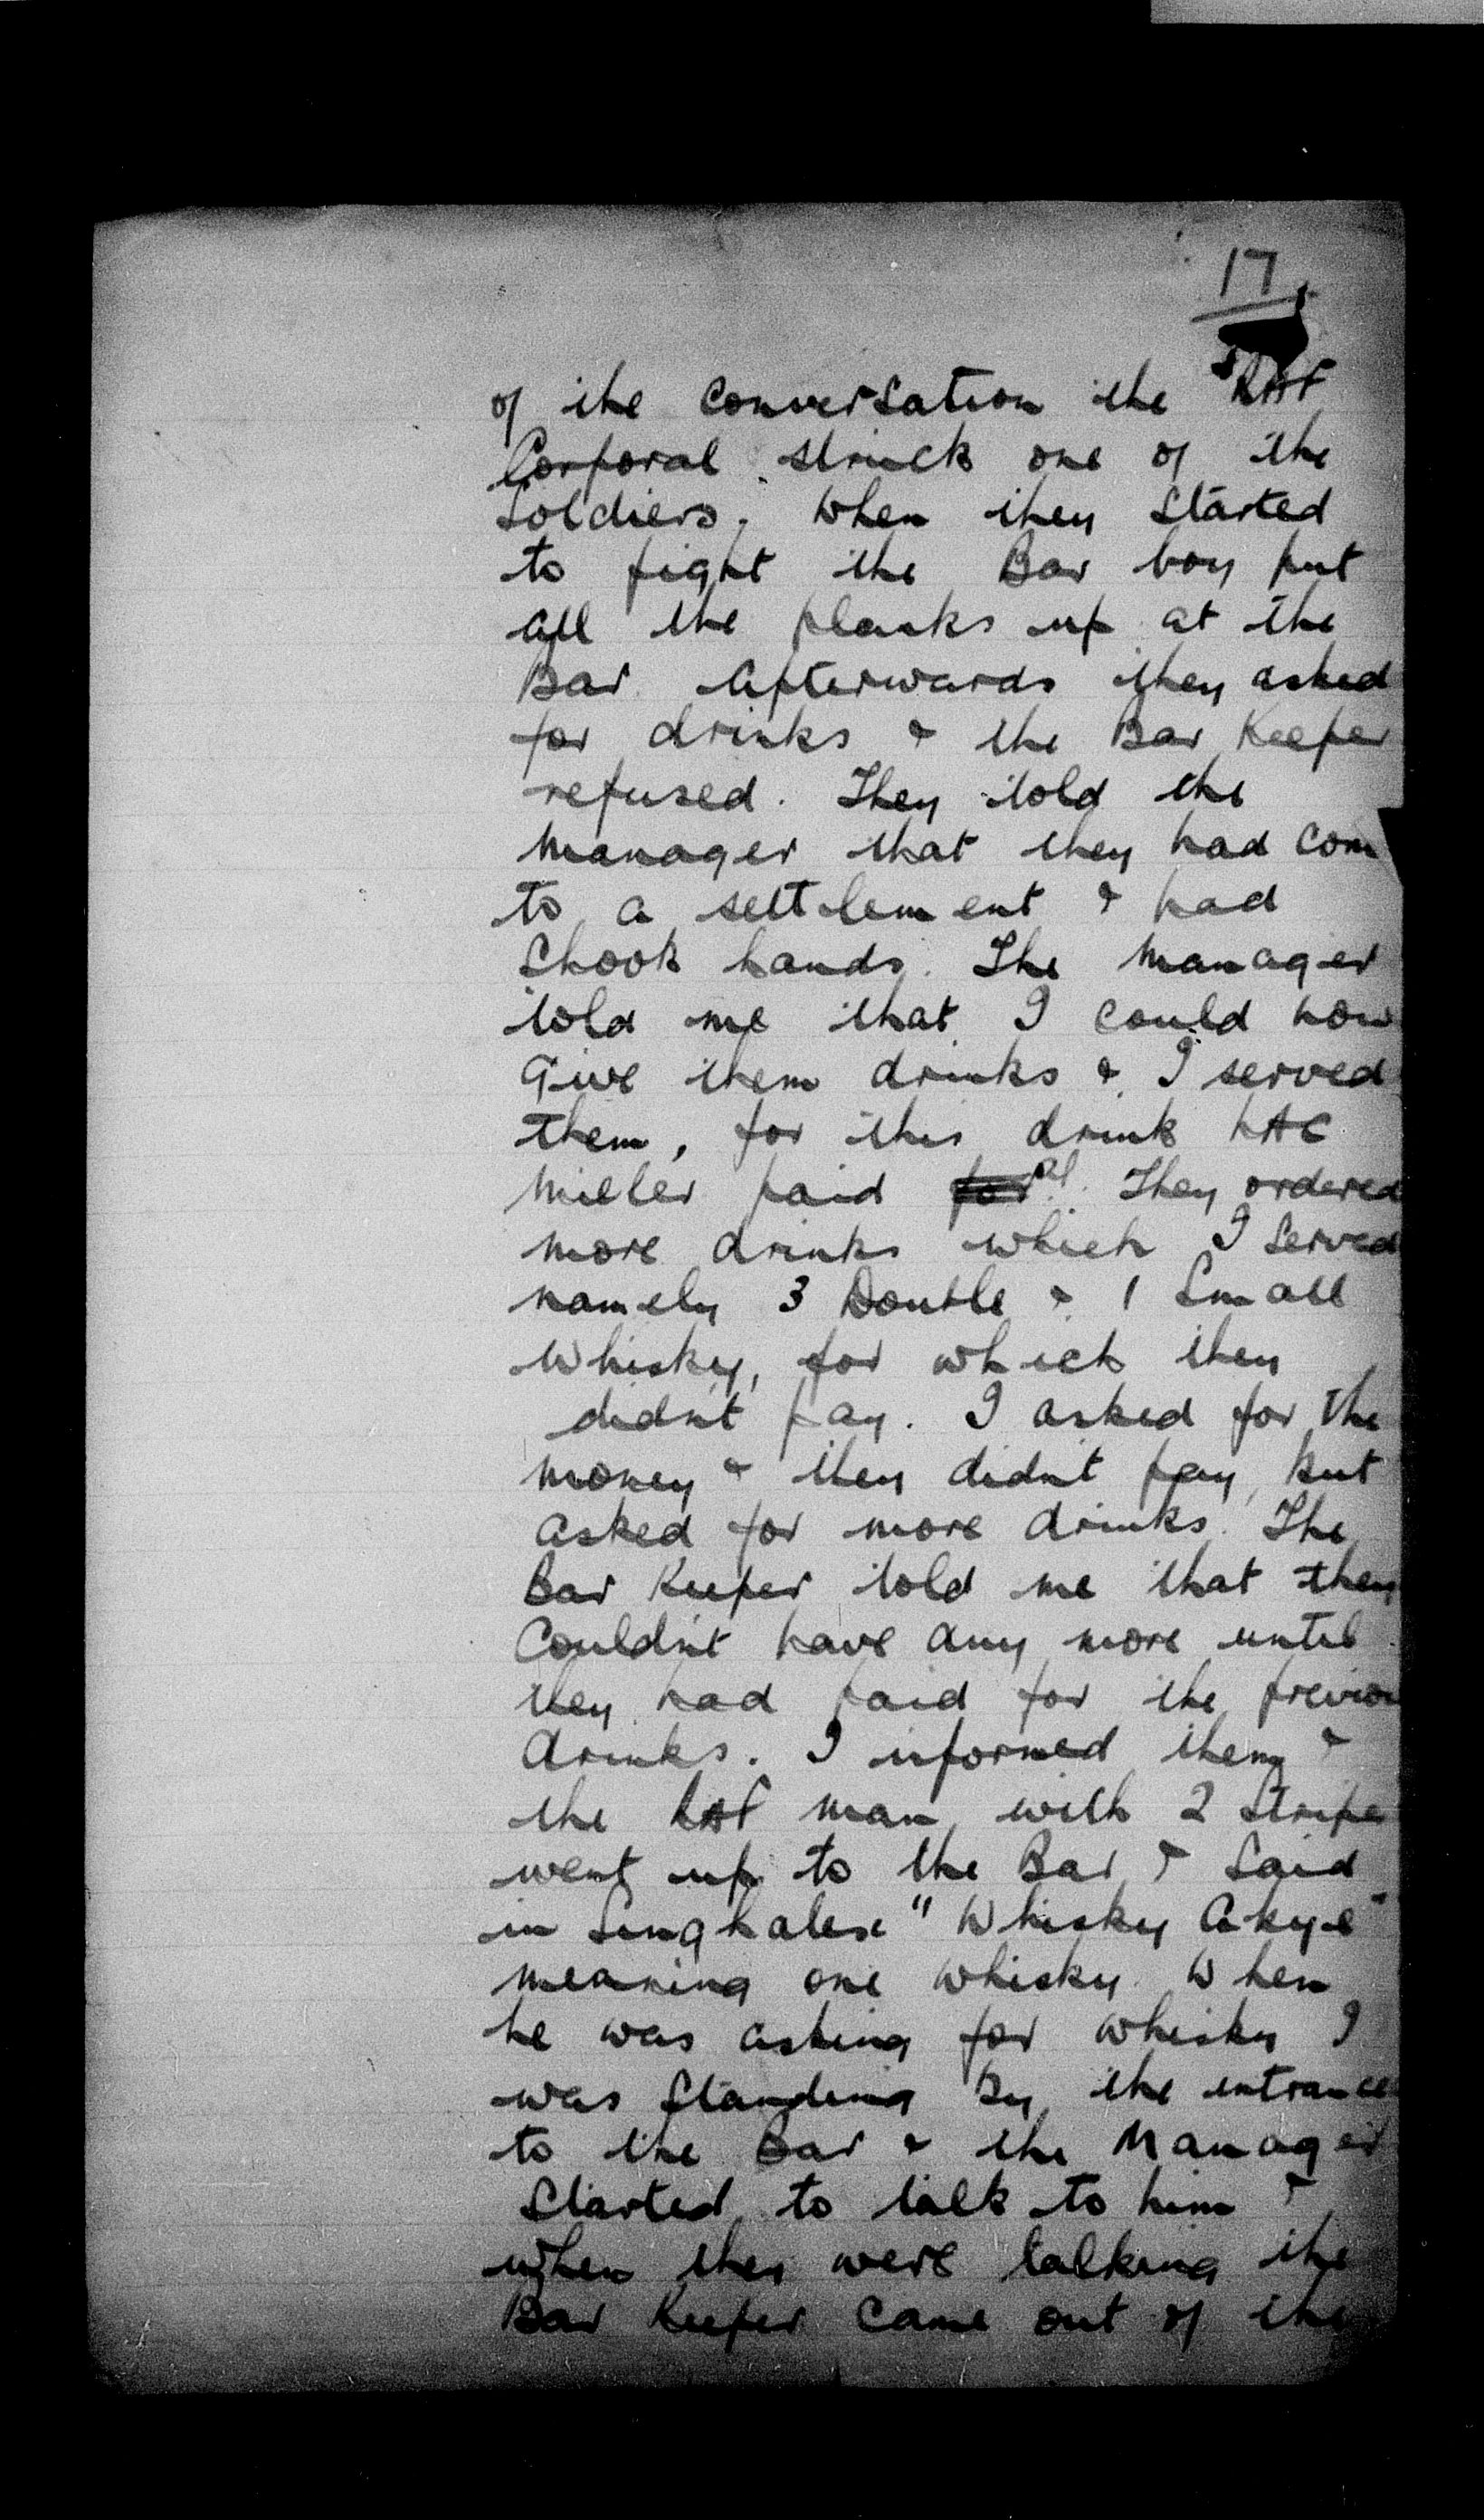 17
of the conversation the RAF
Corporal struck one of the
Soldiers. When they started
to fight the Bar boy put
all the planks up at the
Bar. Afterwards they asked
for drinks & the Bar Keeper
refused. They told the
Manager that they had com
to a settlement & had
Shook hands. The Manager
told me that I could now
Give them drinks & I served
them, for this drink LAC
Miller paid. They ordered
more drinks which I Served
namely 3 Double & 1 Small
Whisky, for which they
didn't pay. I asked for the
money & they didn't pay, but
asked for more drinks. The
Bar Keeper told me that they
Couldn't have any more until
they had paid for the previou
drinks. I informed them &
the RAF man with 2 Stripe
went up to the Bar & Said
in Singhalese "Whisky Akye"
meaning one whisky. When
he was asking for whisky I
was Standing By the entrance
to the Bar & the Manager
Started to talk to him &
when they were talking the
Bar Keeper Came out of the